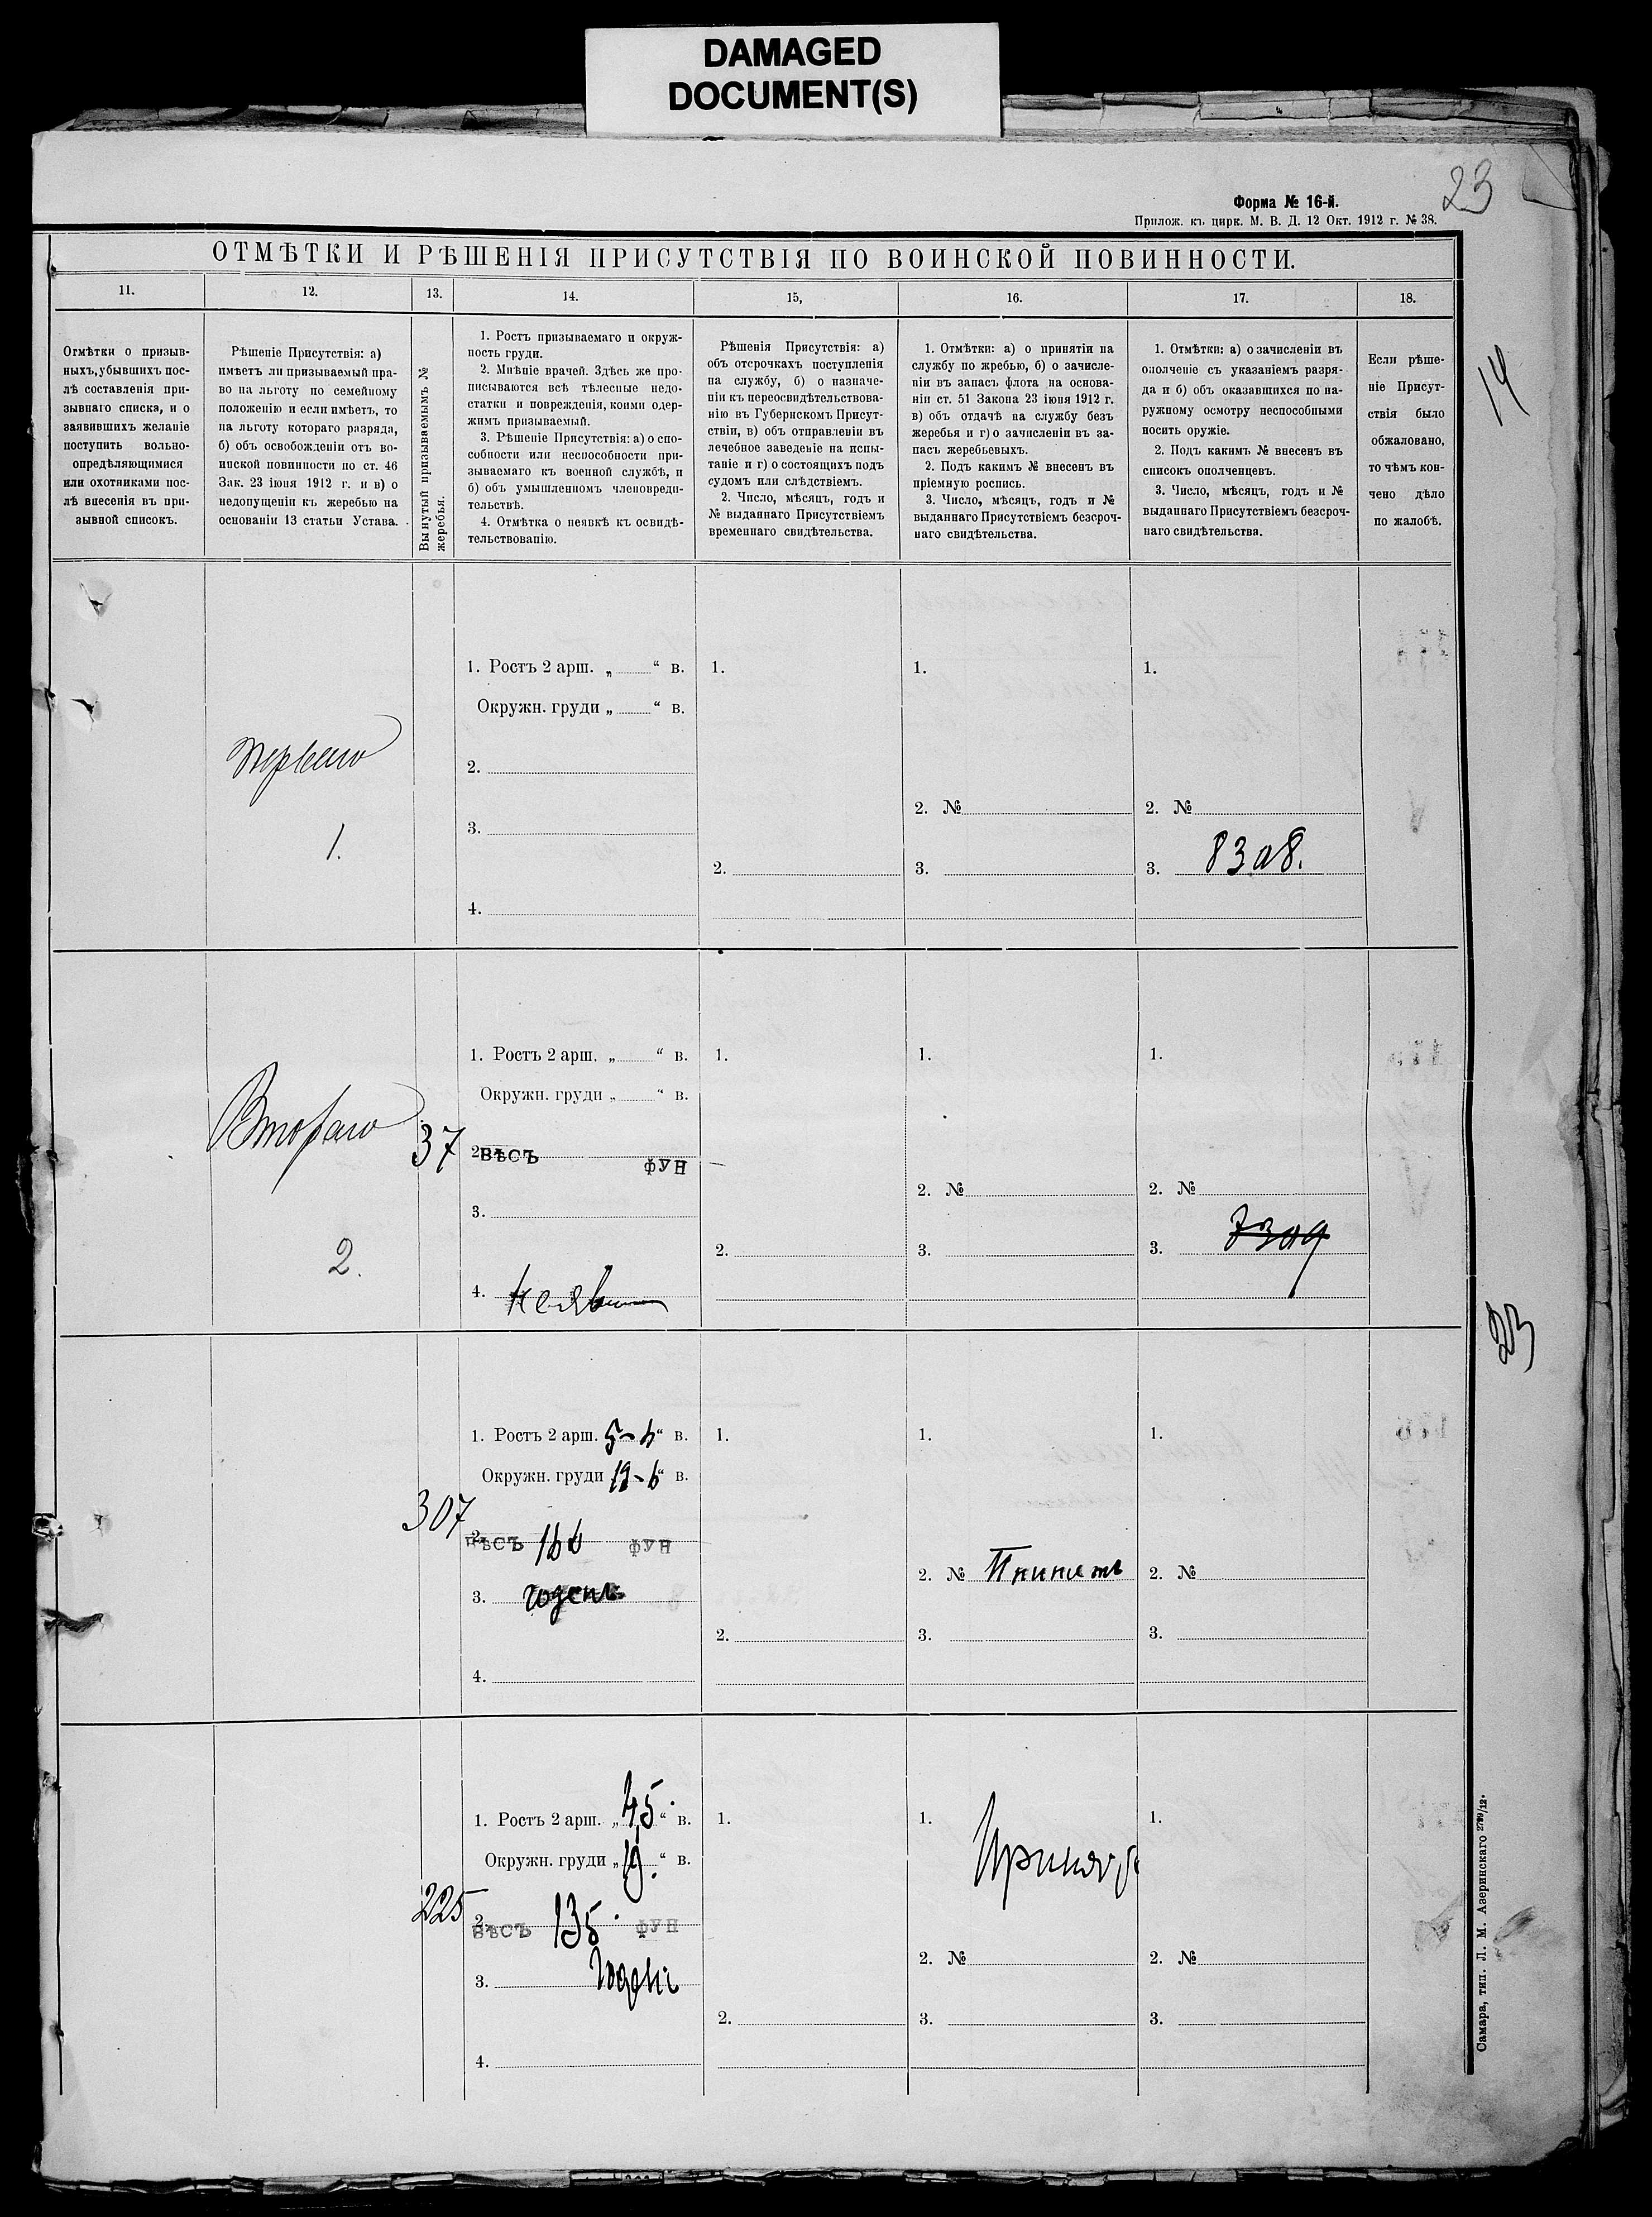 DAMAGED
DOCUMENT(S)
23
Форма № 16-й.
Прилож. къ цирк. М. В. Д. 12 Окт. 1912 г. № 38.
ОТМѢТКИ И РѢШЕНІЯ ПРИСУТСТВІЯ ПО ВОИНСКОЙ ПОВИННОСТИ.
11.
12.
13.
14.
15,
16.
17.
18.
Отмѣтки о призыв-
ныхъ, убывшихъ пос-
лѣ составленія при-
зывнаго списка, и о
заявившихъ желаніе
поступить вольно-
опредѣляющимися
или охотниками пос-
лѣ внесенія въ при-
зывной списокъ.
Рѣшеніе Присутствія: а)
имѣетъ ли призываемый пра-
во на льготу по семейному
положенію и если имѣетъ, то
на льготу котораго разряда,
б) объ освобожденіи отъ во-
инской повинности по ст. 46
Зак. 23 іюня 1912 г. и в) о
недопущеніи къ жеребью на
основаніи 13 статьи Устава.
Вынутый призываемымъ №
жеребья.
1. Ростъ призываемаго и окруж-
ность груди.
2. Мнѣніе врачей. Здѣсь же про-
писываются всѣ тѣлесные недо-
статки и поврежденія, коими одер-
жимъ призываемый.
3. Рѣшеніе Присутствія: а) о спо-
собности или неспособности при-
зываемаго къ военной службѣ, и
б) объ умышленномъ членовреди-
тельствѣ.
4. Отмѣтка о неявкѣ къ освидѣ-
тельствованію.
Рѣшенія Присутствія: а)
объ отсрочкахъ поступленія
на службу, б) о назначе-
ніи къ переосвидѣтельствова-
нію въ Губернскомъ Присут-
ствіи, в) объ отправленіи въ
лечебное заведеніе на испы-
таніе и г) о состоящихъ подъ
судомъ или слѣдствіемъ.
2. Число, мѣсяцъ, годъ и
№ выданнаго Присутствіемъ
временнаго свидѣтельства.
1. Отмѣтки: а) о принятіи на
службу по жребью, б) о зачисле-
ніи въ запасъ флота на основа-
ніи ст. 51 Закона 23 іюня 1912 г.
в) объ отдачѣ на службу безъ
жеребья и г) о зачисленіи въ за-
пасъ жеребьевыхъ.
2. Подъ какимъ № внесенъ въ
пріемную роспись.
3. Число, мѣсяцъ, годъ и №
выданнаго Присутствіемъ безсроч-
наго свидѣтельства.
1. Отмѣтки: а) о зачисленіи въ
ополченіе съ указаніемъ разря-
да и б) объ оказавшихся по на-
ружному осмотру неспособными
носить оружіе.
2. Подъ какимъ № внесенъ въ
списокъ ополченцевъ.
3. Число, мѣсяцъ, годъ и №
выданнаго Присутствіемъ безсроч-
наго свидѣтельства.
Если рѣше-
ніе Присут-
ствія было
обжаловано,
то чѣмъ кон-
чено дѣло
по жалобѣ.
14
1. Ростъ 2 арш. „ “ в.
Окружн. груди „ “ в.
Перваго
1.
2.
3.
4.
1.
2.
1.
2. №
3.
1.
2. №
3. 8308.
Втораго
2.
37
1. Ростъ 2 арш. „ “ в.
Окружн. груди „ “ в.
2. ВѢСЪ ФУН
3.
4. неяв
1.
2.
1.
2. №
3.
1.
2. №
3. 7309
23
307
1. Ростъ 2 арш. “ в.
Окружн. груди “ в.
2. ВѢСЪ ФУН
3. годенъ
4.
1.
2.
1.
2. № Принятъ
3.
1.
2. №
3.
225
1. Ростъ 2 арш. „ 4,5 “ в.
Окружн. груди „ 19 “ в.
2. ВѢСЪ 135 ФУН
3. Годенъ
4.
1.
2.
1. Принятъ
2. №
3.
1.
2. №
3.
Самара, тип. Л. М. Азеринскаго